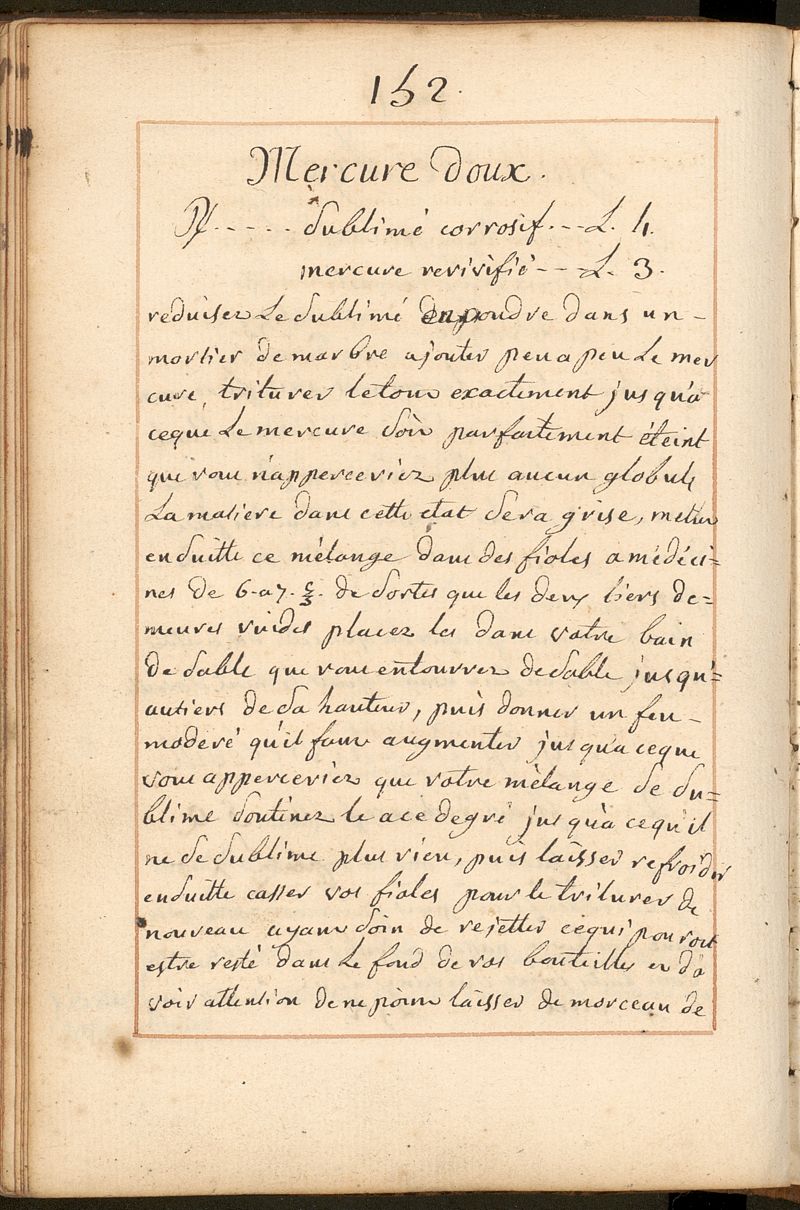 152.
Mercure doux.
℞ - - - - - Sublimé corrosif - - - L. 4.
mercure revivifié - - L. 3.
reduisez Le Sublimé En poudre dans un -
mortier de marbre ajouter peu a peu Le mer
cure, triturer letout exactement jusqu'a
ceque Le mercure Soit parfaitement éteint
que vous n'apperceviez plus aucun globule
La matiere dans cette etat Sera grise, mettez
enSuitte ce mélange dans des fioles a médéci=
nes de 6. a 7. ℥. de Sortes que les deux tiers de=
meures vuides placez les dans votre bain
de Sable que vous entourrez de Sable jusqu'=
autiers de Sa hauteur, puis donner un feu -
moderé qu'il faut augmenter jusqu'a ceque
vous apperceviez que votre mélange Se Su=
blime Soutenez le a ce degré jusqu'a cequ'il
ne Se Sublime plus rien, puis laisser refroidir
enSuitte casser vos fioles pour le triturer de
nouveau ayant Soin de rejetter cequi pourroit
estre resté dans Le fond de vos bouteilles et d'a
voir attention de ne point laisser de morceau de